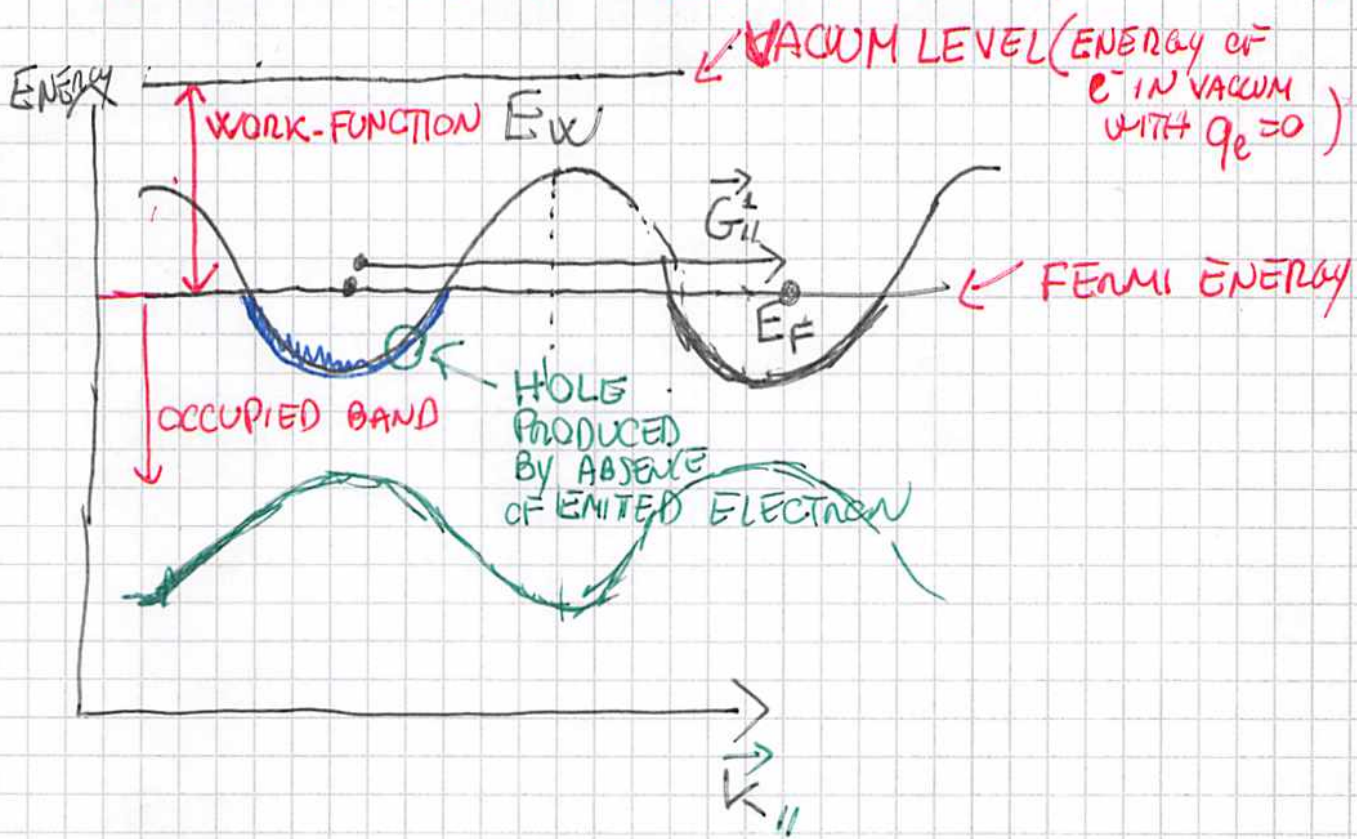 VACUUM LEVEL (ENERGY OF
e⁻ IN VACUUM
WITH qₑ = 0)
ENERGY
WORK-FUNCTION E_W
G⃗¹_∥
FERMI ENERGY
E_F
OCCUPIED BAND
HOLE
PRODUCED
BY ABSENCE
OF EMITED ELECTRON
K⃗_∥